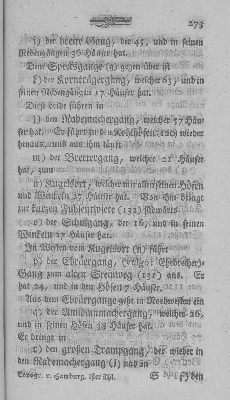 273
i) der zweite Gang, der 45, und in seinen
Nebengängen 36 Häuser hat.
Dem Specksgange (g) gegen über ist
k) der Kornträgergang, welcher 63, und in
seinen Nebengängen 17 Häuser hat.
Diese beide führen in
l) den Rademachergang, welcher 57 Häu-
ser hat. Er führt zu den Kohlhösen (20) wieder
heraus, und aus ihm läuft
m) der Brettergang, welcher 21 Häuser
hat, zum
n) Kugelsort, welcher mit allen seinen Hösen
und Winkeln 27 Häuser hat. Von ihm bringt
zur kurzen Fuhlentwiete (132) südwärts
o) der Schulgang, der 16, und in seinen
Winkeln 27 Häuser hat.
Im Westen vom Kugelsort (n) führt
p) der Ebräergang, (vulgo: Ebebrecher)
Gang zum alten Steinweg (131) aus. Er
hat 24, und in den Hösen 7 Häuser.
Aus dem Ebräergange geht in Nordwesten ein
q) der Amidammachergang, der 28, und in
seinen Hösen 18 Häuser hat.
Er bringt in
r) den großen Trampgang, der wieder in
den Rademachergang (l) zurück läuft.
Topogr. v. Hamburg. 1ster Thl. S s) den